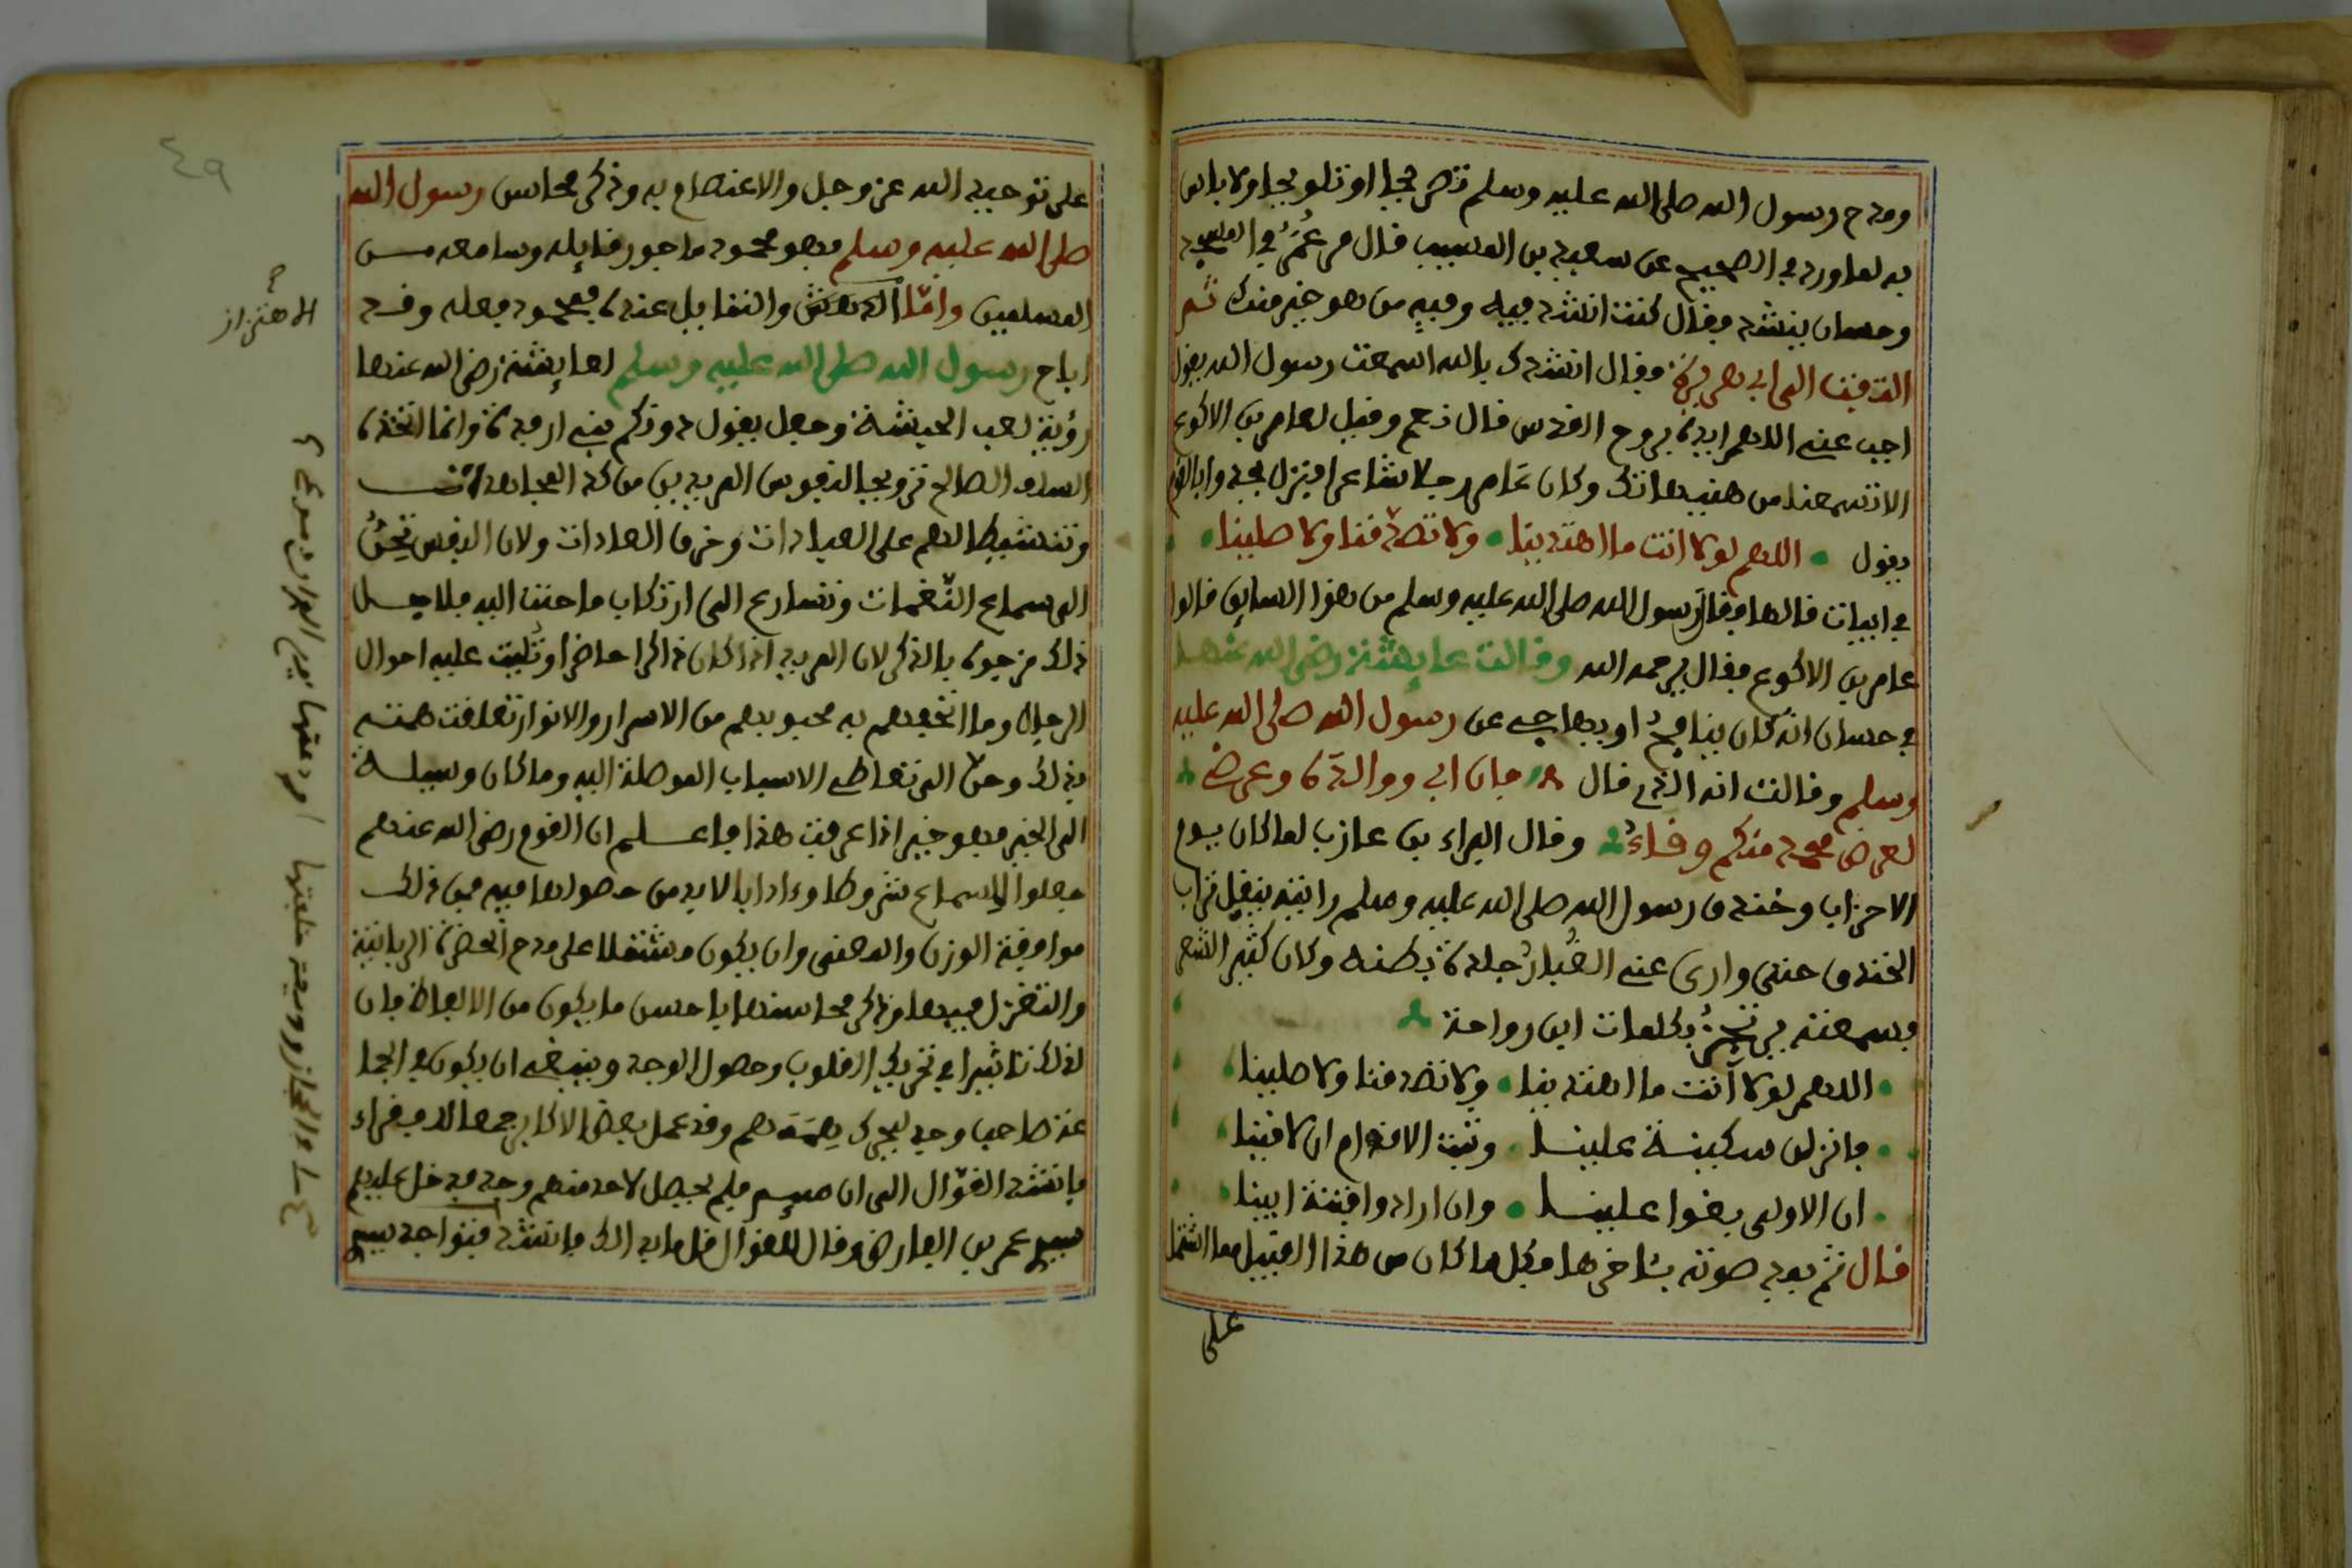 ومدح رسول الله صلى الله عليه وسلم تصريحا او تلويحا ولا باس
به لما ورد في الصحيح عن سعيد بن المسيب قال مر عُمَرُ في المسجد
وحسان ينشد فقال كنت انشد فيه وفيه من هو خير منك ثم
التفت الى ابي هريرة فقال انشدك بالله اسمعت رسول الله يقول
اجب عني اللهم ايده بروح القدس قال نعم وقيل لعامر بن الاكوع
الا تسمعنا من هنيهاتك وكان عامر رجلا شاعرا فنزل يحدوا بالقوم
يقول اللهم لولا انت ما اهتدينا ولا تصدقنا ولا صلينا
في ابيات قالها فقال رسول الله صلى الله عليه وسلم من هذا السايق قالوا
عامر بن الاكوع فقال يرحمه الله وقالت عايشة رضي الله عنها
في حسان انه كان ينافح او يهاجي عن رسول الله صلى الله عليه
وسلم وقالت انه الذي قال فان ابي ووالده وعرضي
لعرض محمد منكم وقاء وقال البراء بن عازب لما كان يوم
الاحزاب وخندق رسول الله صلى الله عليه وسلم رايته ينقل تراب
الخندق حتى وارى عني الغُبارُ جلدة بطنه وكان كثير الشعر
فسمعته يرتجزُ بكلمات ابن رواحة
اللهم لولا أنت ما اهتدينا ولا تصدقنا ولا صلينا
فانزلن سكينة علينا وثبت الاقدام ان لاقينا
ان الاولى بغوا علينا وان ارادوا فتنة ابينا
قال ثم يمد صوته بـاخرها فكل ما كان من هذا القبيل مما اشتمل
على
٤٩
على توحيد الله عز وجل والاعتصام به وذكر محاسن رسول الله
صلى الله عليه وسلم فهو محمود ماجور قايله وسامعه من
المسلمين وامّا والتمايل عنده فمحمود فعله وقد
اباح رسول الله صلى الله عليه وسلم لعايشة رضي الله عنها
رؤية لعب الحبشة وجعل يقول دونكم بني ارفدة وانما اتخذه
السلف الصالح ترويحا لنفوس المريدين من كد المجاهدات
وتنشيطا لهم على العبادات وخرق العادات ولان النفس تحِنُّ
الى سماع النّغمات وتسارع الى ارتكاب ما حنت اليه فلاجل
ذلك مزجوه بالذكر لان المريد اذا كان ذاكرا حاضرا وتُليت عليه احوال
الرجال وما اتحفهم به محبوبهم من الاسرار والانوار تعلقت همته
بذلك وحنّ الى تعاطي الاسباب الموصلة اليه وما كان وسيلة
الى الخير فهو خير اذا عرفت هذا فاعلم ان القوم رضي الله عنهم
جعلوا للسماع شروطا وءادابا لا بد من حصولها فيه فمن ذلك
موافقة الوزن والمعنى وان يكون مشتملا على مدح الحضرة الربانية
والتغزل فيها وذكر محاسنها باحسن ما يكون من الالفاظ فان
لذلك تاثيرا في تحريك القلوب وحصول الوجد وينبغي ان يكون في الجما
عة صاحب وجد ليحرك هِمَمَهم وقد عمل بعض الاكابر جمعا للفقراء
فانشد القوّال الى ان فلم يحصل لاحد منهم وجد فدخل عليهم
سيدي عمر بن الفارض وقال للقوال قل ما بدا لك فانشد فتواجد سيدي
الاهتزاز